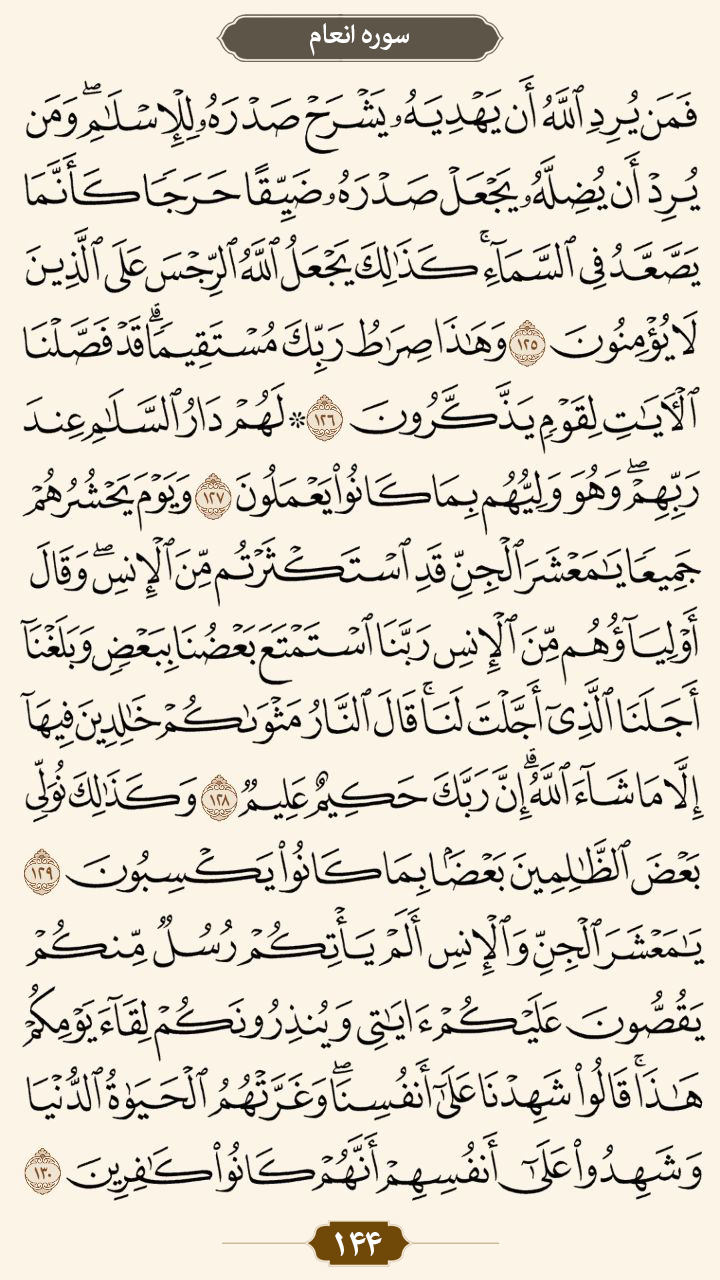 سوره انعام
فَمَن يُرِدِ ٱللَّهُ أَن يَهْدِيَهُۥ يَشْرَحْ صَدْرَهُۥ لِلْإِسْلَٰمِ ۖ وَمَن
يُرِدْ أَن يُضِلَّهُۥ يَجْعَلْ صَدْرَهُۥ ضَيِّقًا حَرَجًا كَأَنَّمَا
يَصَّعَّدُ فِى ٱلسَّمَآءِ ۚ كَذَٰلِكَ يَجْعَلُ ٱللَّهُ ٱلرِّجْسَ عَلَى ٱلَّذِينَ
لَا يُؤْمِنُونَ ۝١٢٥ وَهَٰذَا صِرَٰطُ رَبِّكَ مُسْتَقِيمًا ۗ قَدْ فَصَّلْنَا
ٱلْءَايَٰتِ لِقَوْمٍ يَذَّكَّرُونَ ۝١٢٦ ۞ لَهُمْ دَارُ ٱلسَّلَٰمِ عِندَ
رَبِّهِمْ ۖ وَهُوَ وَلِيُّهُم بِمَا كَانُوا۟ يَعْمَلُونَ ۝١٢٧ وَيَوْمَ يَحْشُرُهُمْ
جَمِيعًا يَٰمَعْشَرَ ٱلْجِنِّ قَدِ ٱسْتَكْثَرْتُم مِّنَ ٱلْإِنسِ ۖ وَقَالَ
أَوْلِيَآؤُهُم مِّنَ ٱلْإِنسِ رَبَّنَا ٱسْتَمْتَعَ بَعْضُنَا بِبَعْضٍ وَبَلَغْنَآ
أَجَلَنَا ٱلَّذِىٓ أَجَّلْتَ لَنَا ۚ قَالَ ٱلنَّارُ مَثْوَىٰكُمْ خَٰلِدِينَ فِيهَآ
إِلَّا مَا شَآءَ ٱللَّهُ ۗ إِنَّ رَبَّكَ حَكِيمٌ عَلِيمٌ ۝١٢٨ وَكَذَٰلِكَ نُوَلِّى
بَعْضَ ٱلظَّٰلِمِينَ بَعْضًۢا بِمَا كَانُوا۟ يَكْسِبُونَ ۝١٢٩
يَٰمَعْشَرَ ٱلْجِنِّ وَٱلْإِنسِ أَلَمْ يَأْتِكُمْ رُسُلٌ مِّنكُمْ
يَقُصُّونَ عَلَيْكُمْ ءَايَٰتِى وَيُنذِرُونَكُمْ لِقَآءَ يَوْمِكُمْ
هَٰذَا ۚ قَالُوا۟ شَهِدْنَا عَلَىٰٓ أَنفُسِنَا ۖ وَغَرَّتْهُمُ ٱلْحَيَوٰةُ ٱلدُّنْيَا
وَشَهِدُوا۟ عَلَىٰٓ أَنفُسِهِمْ أَنَّهُمْ كَانُوا۟ كَٰفِرِينَ ۝١٣٠
۱۴۴